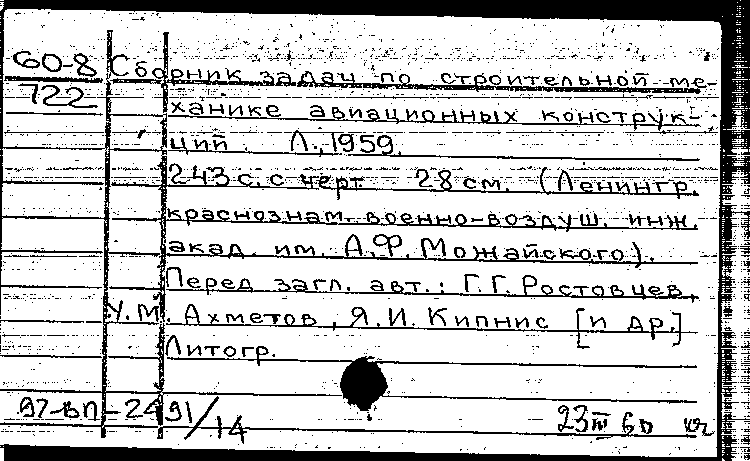 60-8 Сборник задач по строительной ме-
722 ханике авиационных конструк-
ций. Л., 1959.
243 с. с черт. 28 см. (Ленингр.
краснознам. военно-воздуш. инж.
акад. им. А.Ф. Можайского).
Перед загл. авт.: Г.Г. Ростовцев,
У.М. Ахметов, Я.И. Кипнис [и др.]
Литогр.
97-ВП-2491/14 23 III 60